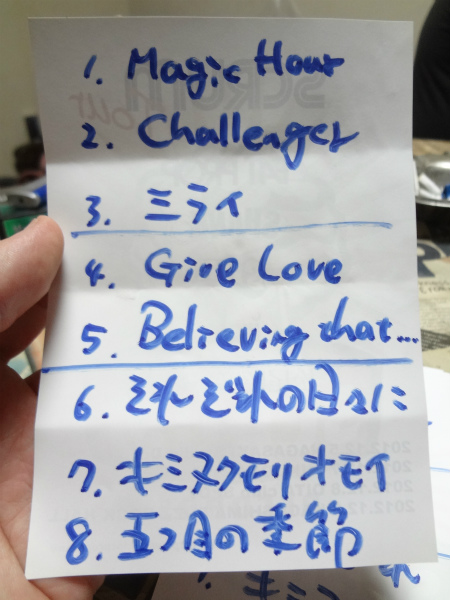 1. Magic Hour
2. Challenger
3. ミライ
4. Give Love
5. Believing that...
6. それぞれの日々に
7. キミヌクモリオモイ
8. 五つ目の季節